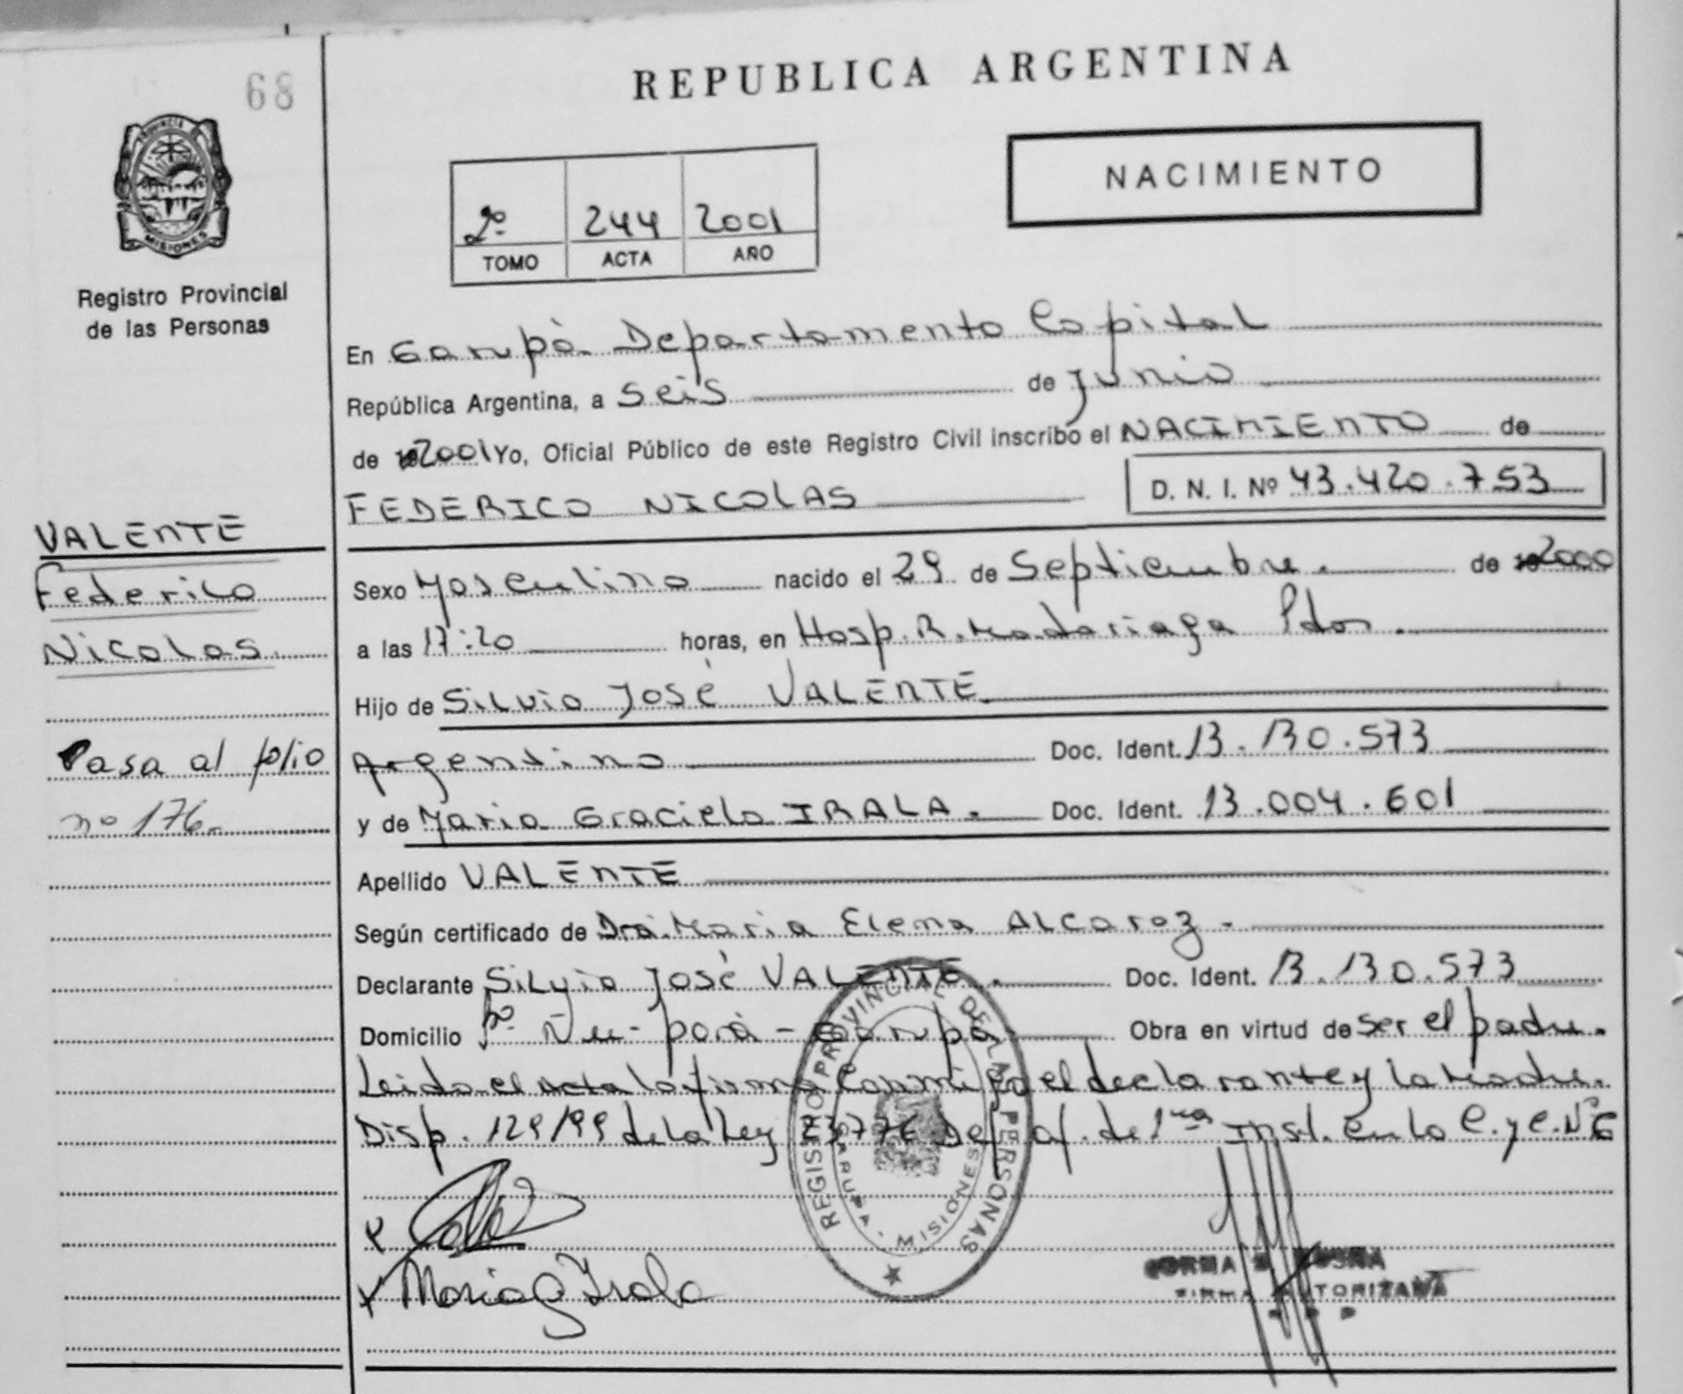 68
REPUBLICA ARGENTINA
PROVINCIA DE
MISIONES
Registro Provincial
de las Personas
NACIMIENTO
2º 244 2001
TOMO ACTA AÑO
En Garupá Departamento Capital
República Argentina, a seis de Junio
de 2001 Yo, Oficial Público de este Registro Civil inscribo el NACIMIENTO de
FEDERICO NICOLAS D. N. I. Nº 43.420.753
VALENTE
Federico
Nicolas
Sexo Masculino nacido el 29 de Septiembre de 2000
a las 17:20 horas, en Hosp. R. Madariaga Pdas.
Hijo de Silvio José VALENTE
Pasa al folio
nº 176
Argentino Doc. Ident. 13.130.573
y de Maria Graciela IRALA. Doc. Ident. 13.004.601
Apellido VALENTE
Según certificado de Dra. Maria Elena Alcaraz.
Declarante Silvio José VALENTE. Doc. Ident. 13.130.573
Domicilio Bº Ñu-porá-Garupá Obra en virtud de ser el padre.
Leida el acta la firma conmigo el declarante y la Madre.
Disp. 129/99 de la Ley 23776 Def. Of. de 1ra Inst. en lo C. y C. Nº 6
REGISTRO PROVINCIAL DE LAS PERSONAS
GARUPA - MISIONES
x
x Maria G Irala
FIRMA AUTORIZADA